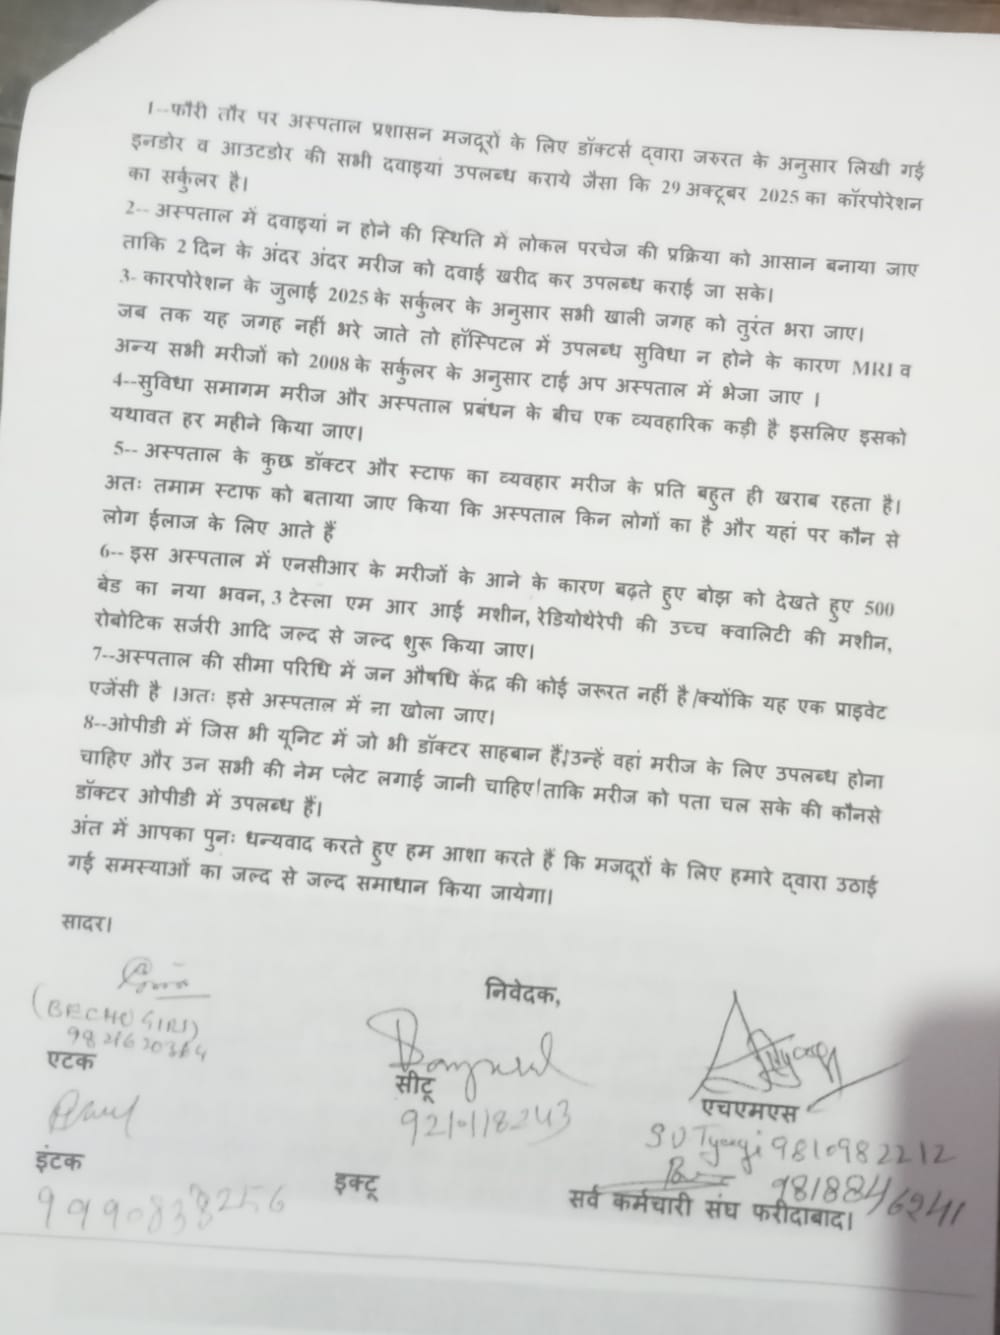 1--फौरी तौर पर अस्पताल प्रशासन मजदूरों के लिए डॉक्टर्स द्वारा जरुरत के अनुसार लिखी गई
इनडोर व आउटडोर की सभी दवाइयां उपलब्ध कराये जैसा कि 29 अक्टूबर 2025 का कॉरपोरेशन
का सर्कुलर है।
2-- अस्पताल में दवाइयां न होने की स्थिति में लोकल परचेज की प्रक्रिया को आसान बनाया जाए
ताकि 2 दिन के अंदर अंदर मरीज को दवाई खरीद कर उपलब्ध कराई जा सके।
3- कारपोरेशन के जुलाई 2025 के सर्कुलर के अनुसार सभी खाली जगह को तुरंत भरा जाए।
जब तक यह जगह नहीं भरे जाते तो हॉस्पिटल में उपलब्ध सुविधा न होने के कारण MRI व
अन्य सभी मरीजों को 2008 के सर्कुलर के अनुसार टाई अप अस्पताल में भेजा जाए ।
4--सुविधा समागम मरीज और अस्पताल प्रबंधन के बीच एक व्यवहारिक कड़ी है इसलिए इसको
यथावत हर महीने किया जाए।
5-- अस्पताल के कुछ डॉक्टर और स्टाफ का व्यवहार मरीज के प्रति बहुत ही खराब रहता है।
अतः तमाम स्टाफ को बताया जाए किया कि अस्पताल किन लोगों का है और यहां पर कौन से
लोग ईलाज के लिए आते हैं
6-- इस अस्पताल में एनसीआर के मरीजों के आने के कारण बढ़ते हुए बोझ को देखते हुए 500
बेड का नया भवन, 3 टेस्ला एम आर आई मशीन, रेडियोथेरेपी की उच्च क्वालिटी की मशीन,
रोबोटिक सर्जरी आदि जल्द से जल्द शुरू किया जाए।
7--अस्पताल की सीमा परिधि में जन औषधि केंद्र की कोई जरूरत नहीं है।क्योंकि यह एक प्राइवेट
एजेंसी है ।अतः इसे अस्पताल में ना खोला जाए।
8--ओपीडी में जिस भी यूनिट में जो भी डॉक्टर साहबान हैं,उन्हें वहां मरीज के लिए उपलब्ध होना
चाहिए और उन सभी की नेम प्लेट लगाई जानी चाहिए।ताकि मरीज को पता चल सके की कौनसे
डॉक्टर ओपीडी में उपलब्ध हैं।
अंत में आपका पुनः धन्यवाद करते हुए हम आशा करते हैं कि मजदूरों के लिए हमारे द्वारा उठाई
गई समस्याओं का जल्द से जल्द समाधान किया जायेगा।
सादर।
निवेदक,
(BECHU GIRI)
एटक
सीटू
9210118243
एचएमएस
S D Tyagi 9810982212
9818846241
इंटक
इक्टू
सर्व कर्मचारी संघ फरीदाबाद।